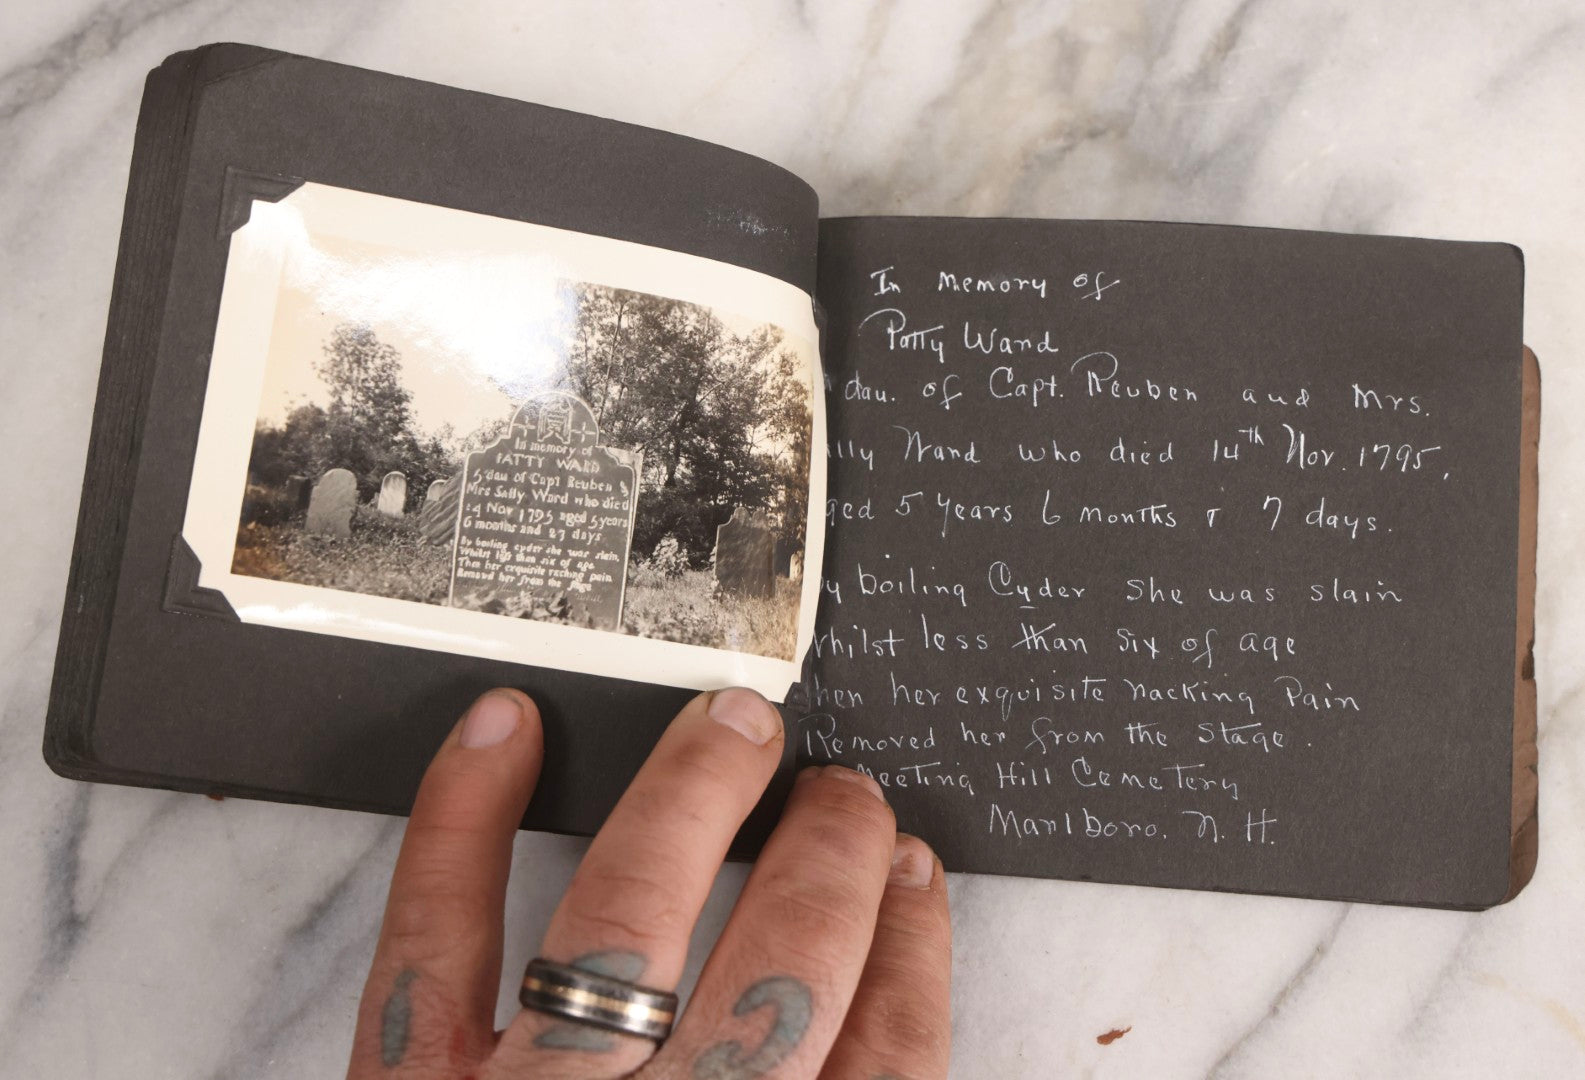 In memory of
PATTY WARD
dau of Capt Reuben &
Mrs Sally Ward who died
14 Nov 1795 aged 5 years
6 months and 27 days
By boiling cyder she was slain,
Whilst less than six of age
Then her exquisite racking pain
Removed her from the stage
In memory of
Patty Ward
dau. of Capt. Reuben and Mrs.
illy Ward who died 14th Nov. 1795,
ged 5 years 6 months & 7 days.
y boiling Cyder she was slain
whilst less than six of age
hen her exquisite racking Pain
Removed her from the stage.
Meeting Hill Cemetery
Marlboro. N. H.